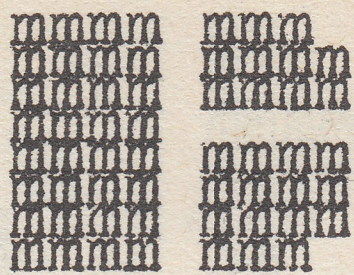 mmmm mmm
mmmm mmmm
mmmm mmmm
mmmm
mmmm mmmm
mmmm mmmm
mmmm mmmm
mmmm mmm